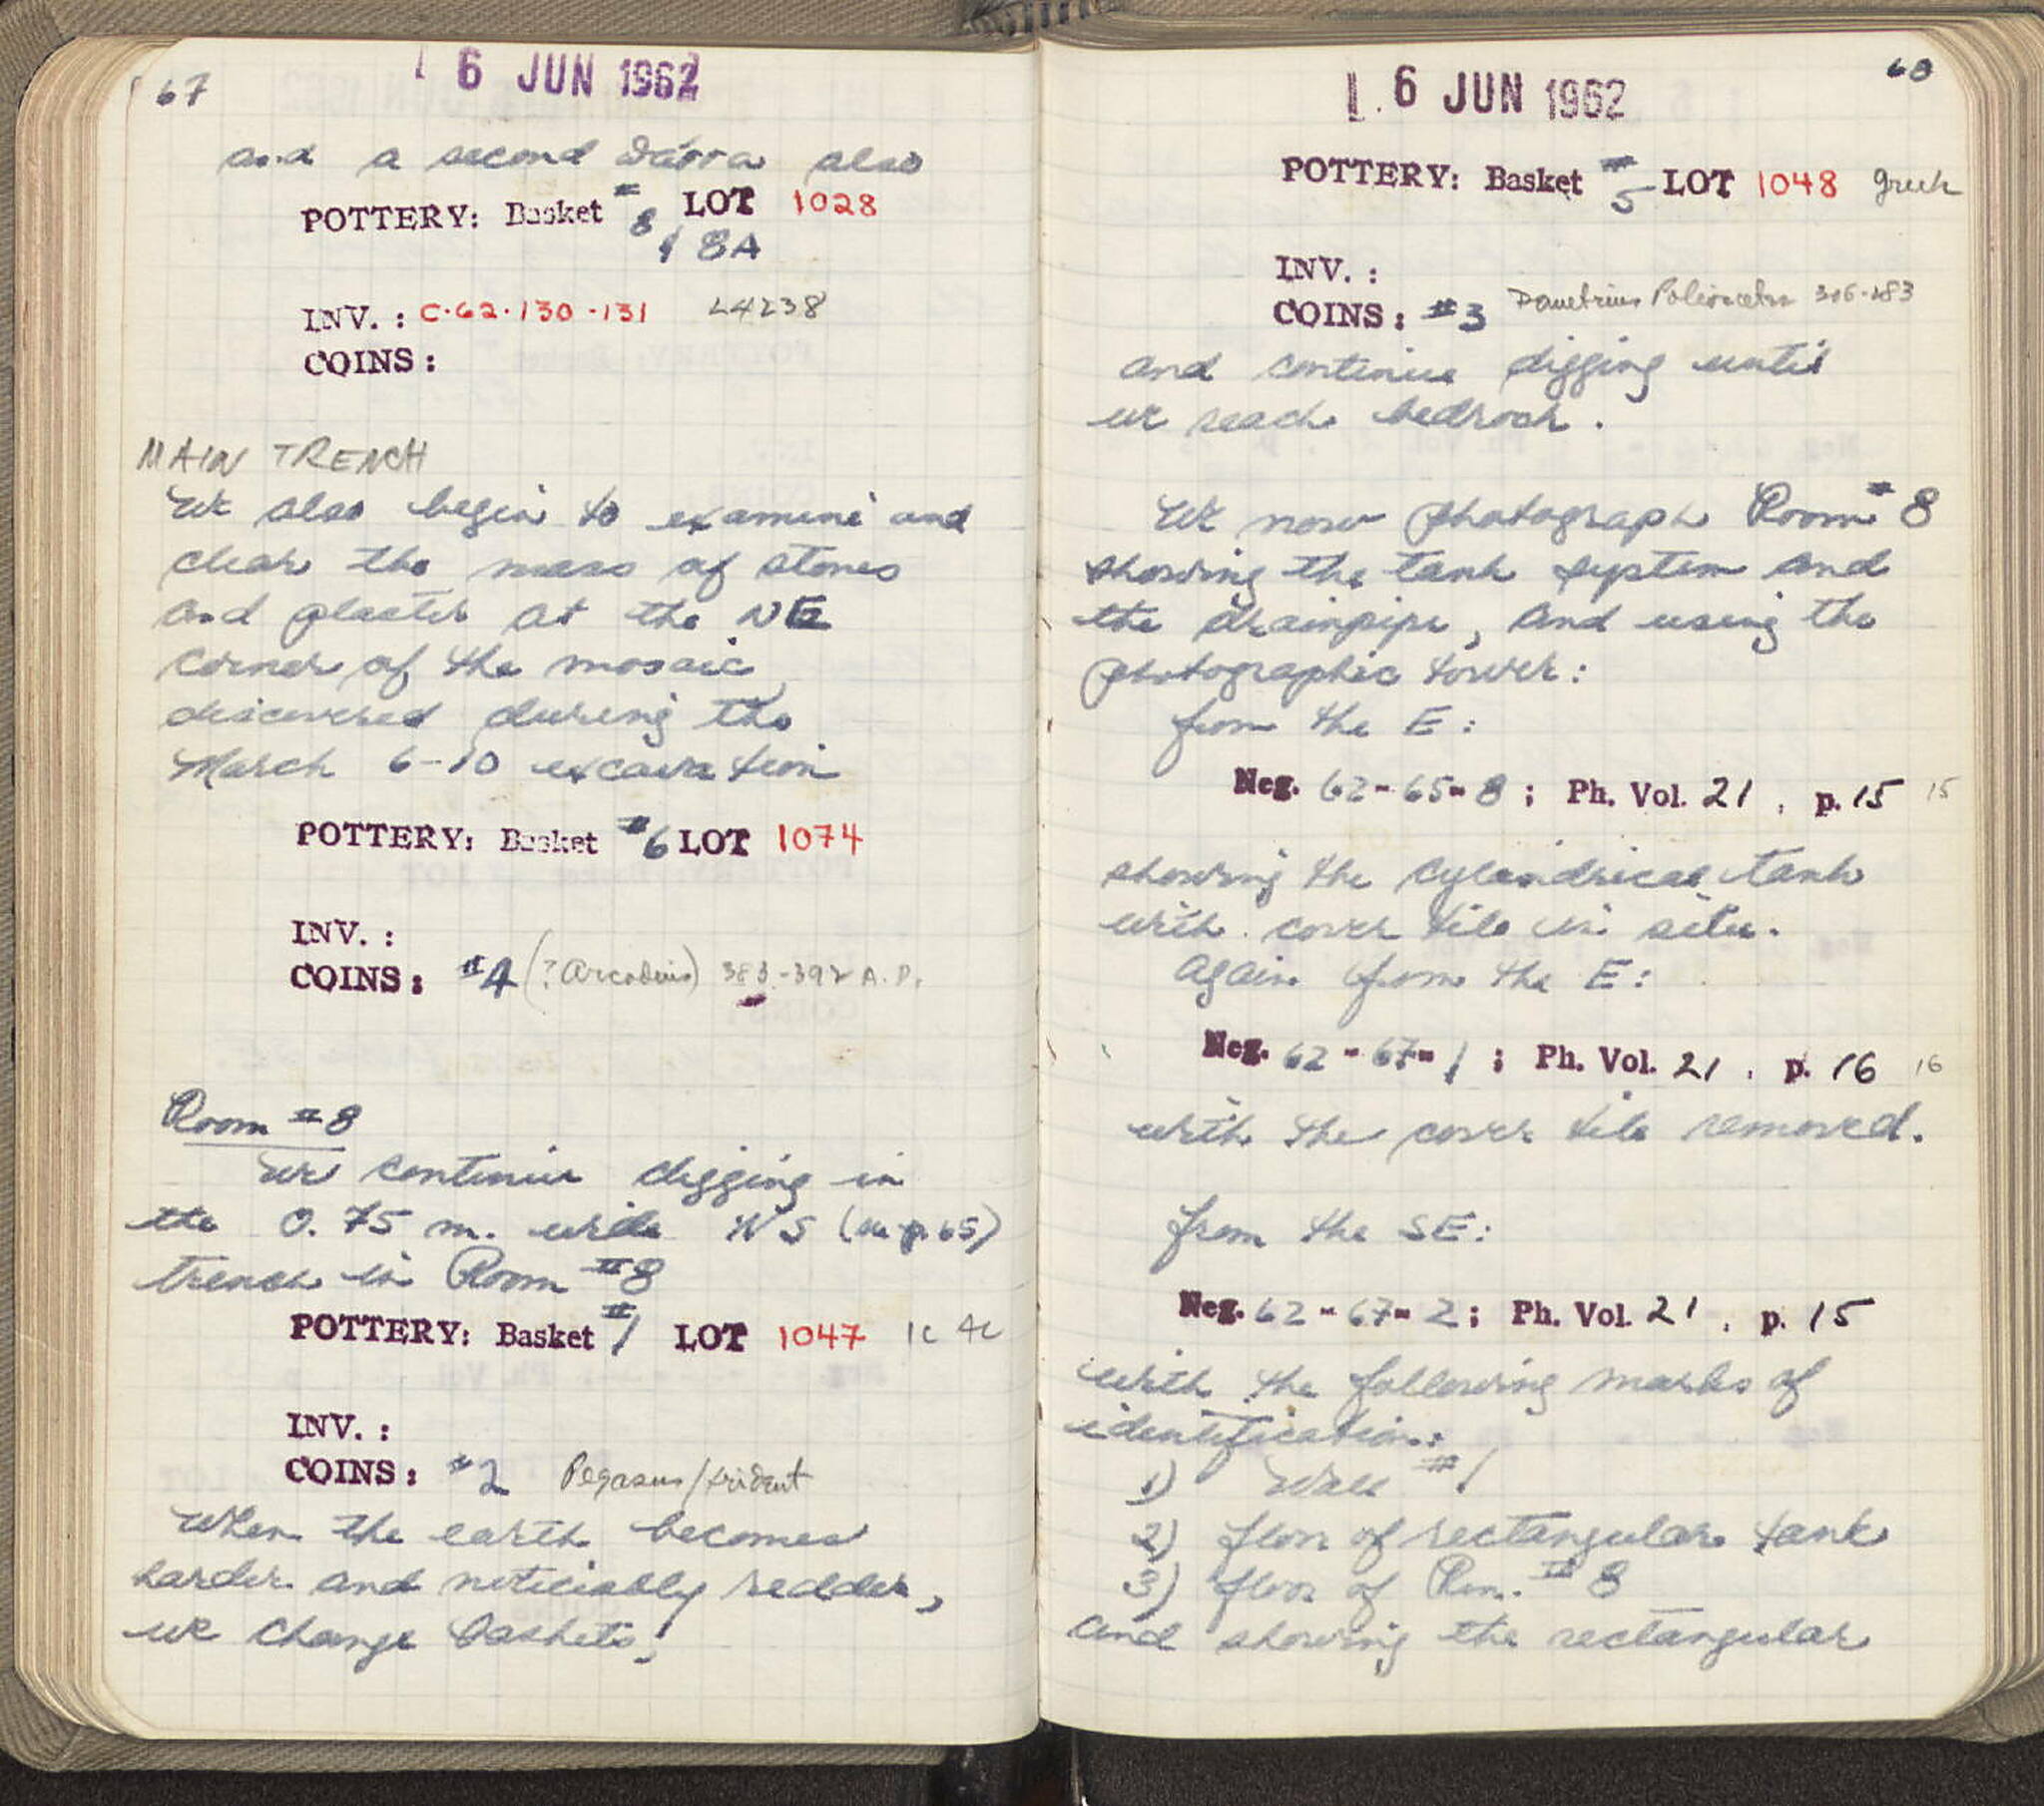 67
6 JUN 1962
and a second also
POTTERY: Basket # 8 LOT 1028
& 8A
INV. : C.62.130-131 L4238
COINS:
MAIN TRENCH
We also begin to examine and
clear the mass of stones
and plaster at the NE
corner of the mosaic
discovered during the
March 6-10 excavation
POTTERY: Basket #6 LOT 1074
INV. :
COINS: #4 (? Arcadius) 383-392 A.D.
Room #8
We continue digging in
the 0.75 m. wide NS (see p. 65)
trench in Room #8
POTTERY: Basket #1 LOT 1047 1c 4c
INV. :
COINS: #2 Pegasus/trident
When the earth becomes
harder and noticiably redder,
we change baskets:
68
6 JUN 1962
POTTERY: Basket #5 LOT 1048 Greek
INV. :
COINS: #3 Demetrius Poliorcetes 306-283
and continue digging until
we reach bedrock.
We now photograph Room #8
showing the tank system and
the drainpipe, and using the
photographic tower:
from the E:
Neg. 62-65-8; Ph. Vol. 21, p. 15 15
showing the cylindrical tank
with cover tile in situ.
Again from the E:
Neg. 62-67-1; Ph. Vol. 21, p. 16 16
with the cover tile removed.
from the SE:
Neg. 62-67-2; Ph. Vol. 21, p. 15
with the following marks of
identification:
1) Wall #1
2) floor of rectangular tank
3) floor of Rm. #8
and showing the rectangular